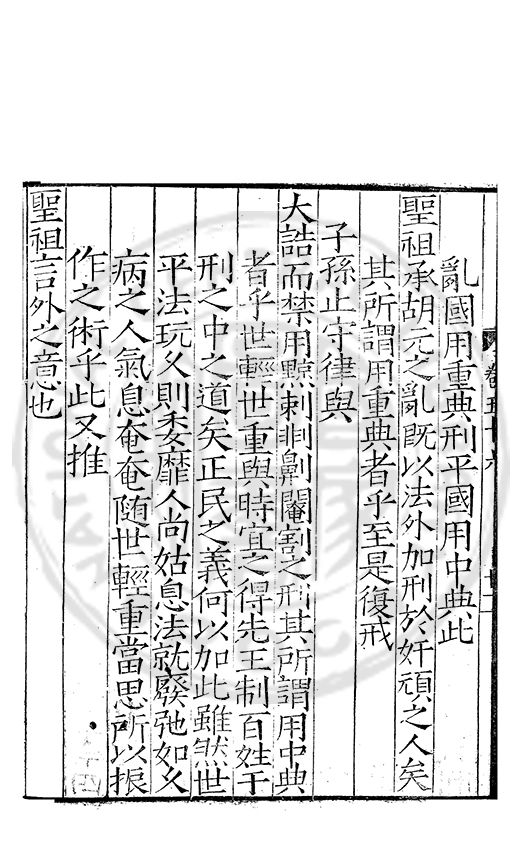 亂國用重典刑平國用中典此
聖祖承胡元之亂旣以法外加刑於奸頑之人矣
其所謂用重典者乎至是復戒
子孫止守律與
大誥而禁用黥刺剕劓閹割之刑其所謂用中典
者乎世輕世重與時宜之得先王制百姓于
刑之中之道矣正民之義何以加此雖然世
平法玩久則委靡人尚姑息法就廢弛如久
病之人氣息奄奄随世輕重當思所以振
作之術乎此又推
聖祖言外之意也